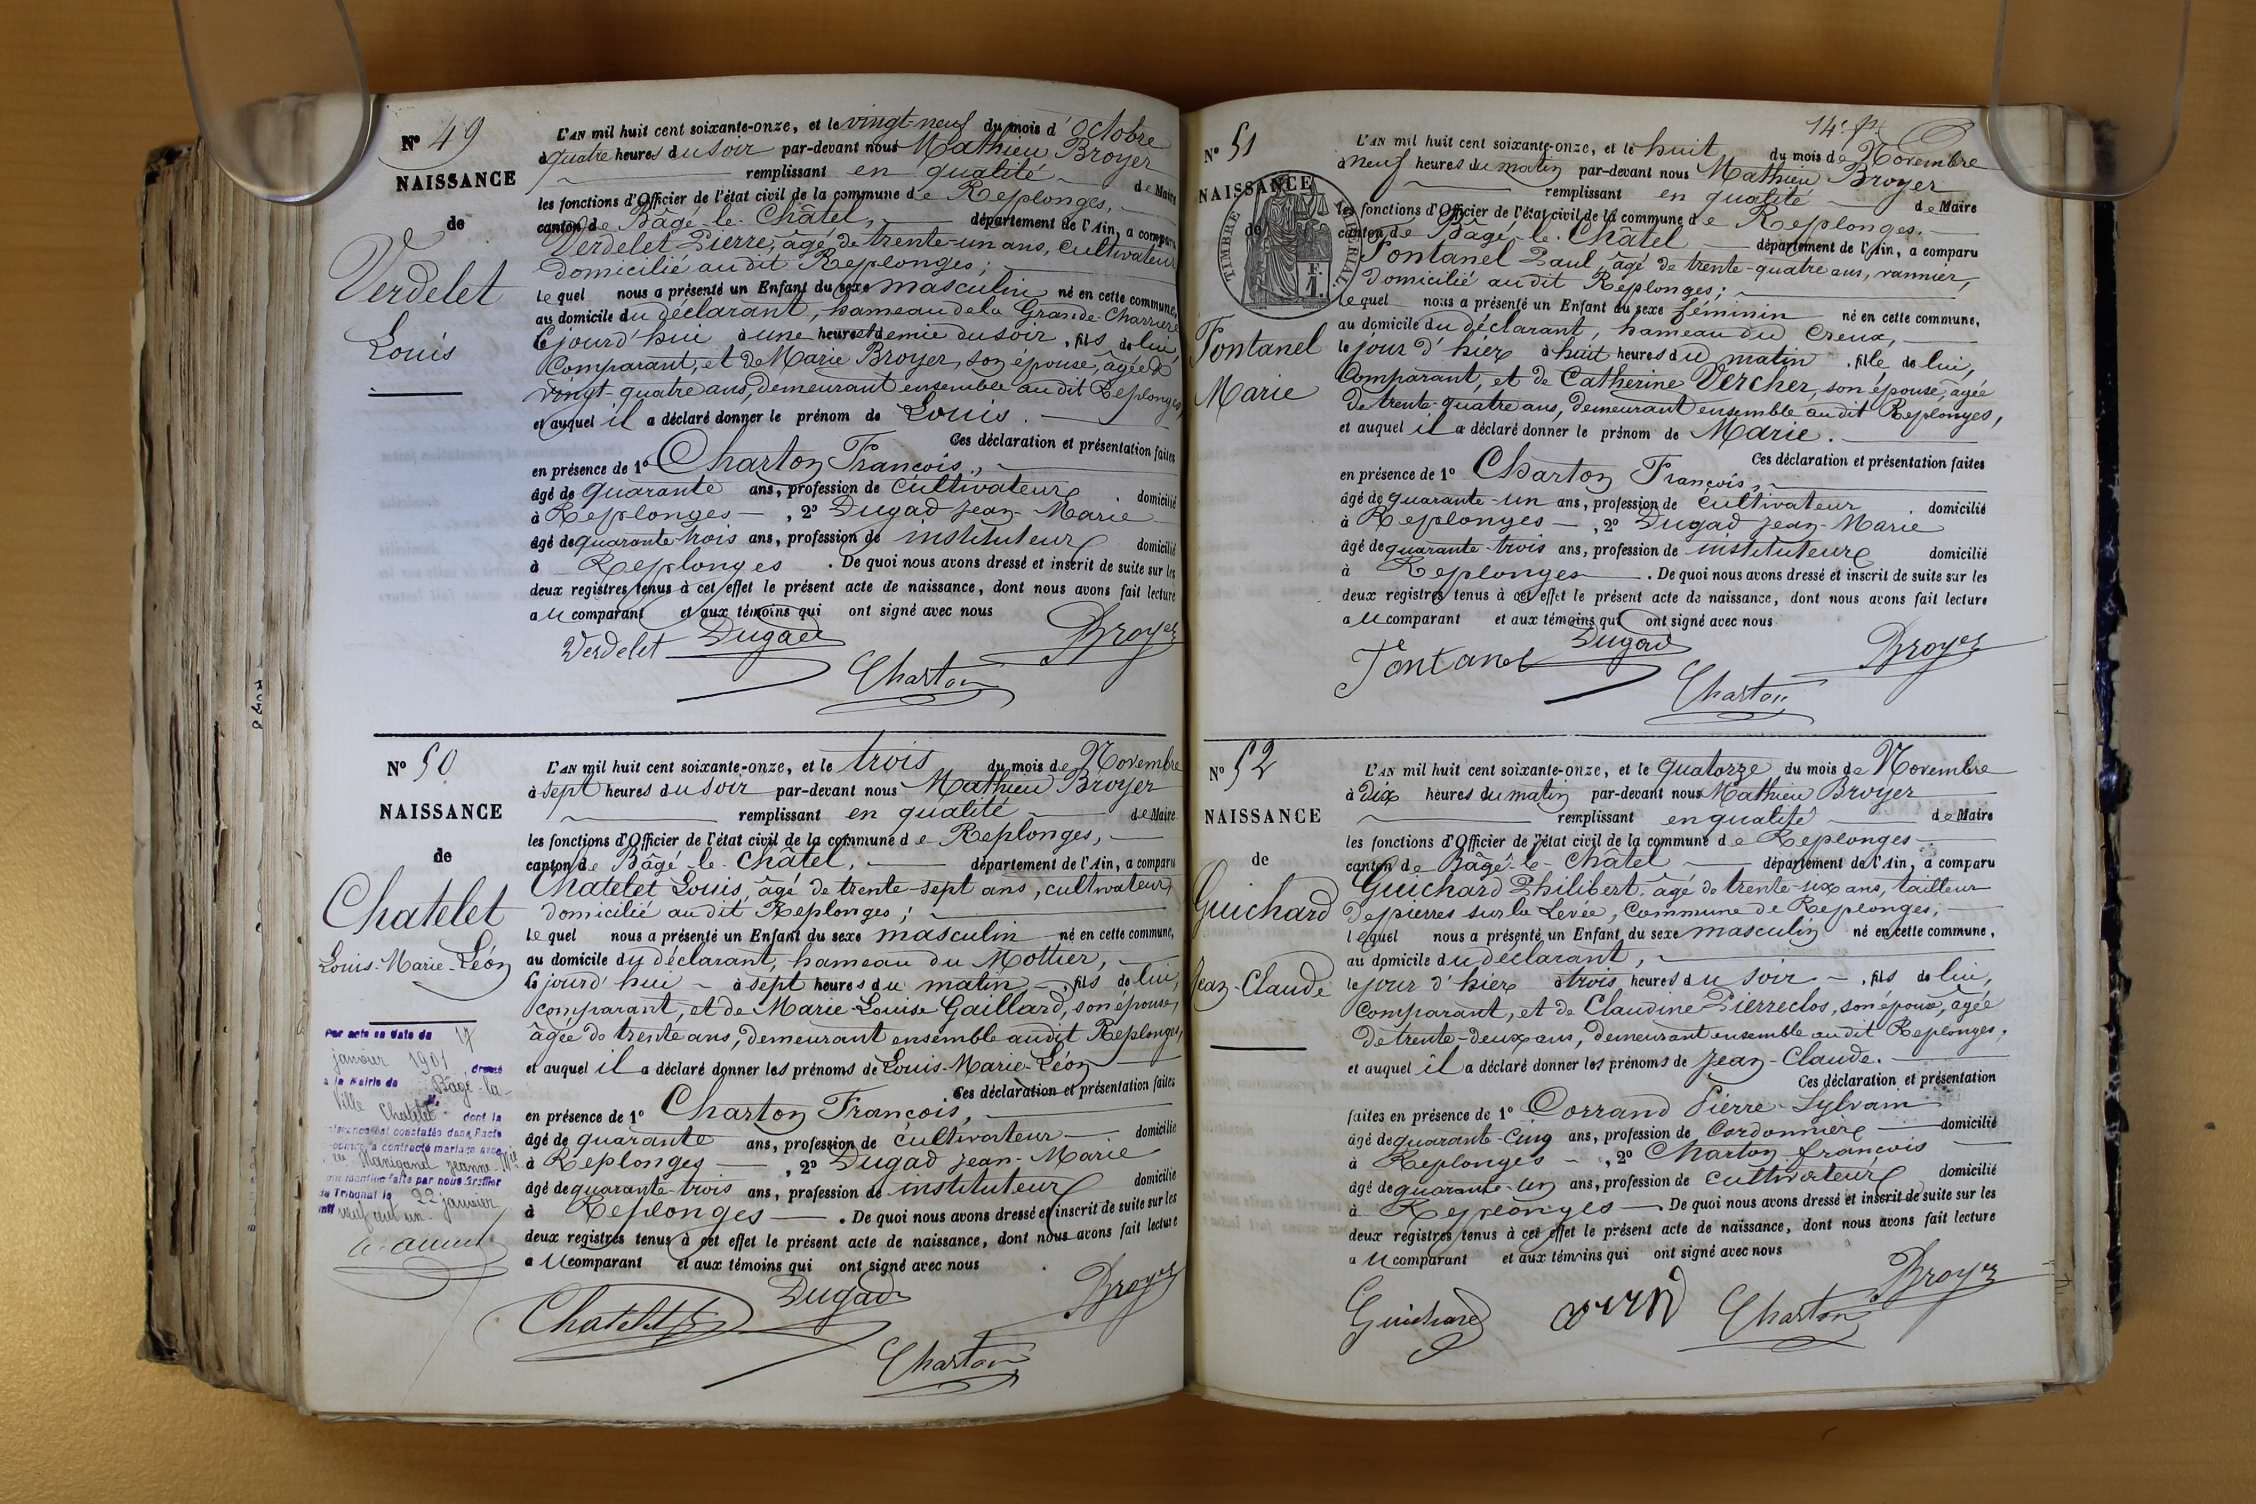 N° 49
NAISSANCE
de
Verdelet
Louis
L'AN mil huit cent soixante-onze, et le vingt-neuf du mois d'Octobre
à quatre heures du soir par-devant nous Mathieu Broyer
remplissant en qualité de Maire
les fonctions d'Officier de l'état civil de la commune de Replonges,
canton de Bâgé-le-Châtel, département de l'Ain, a comparu
Verdelet Pierre, âgé de trente-un ans, cultivateur
domicilié audit Replonges;
lequel nous a présenté un Enfant du sexe masculin né en cette commune,
au domicile du déclarant, hameau de la Grande Charrière
Cejourd'hui à une heure et demie du soir, fils de lui,
Comparant, et de Marie Broyer, son épouse, âgée de
vingt-quatre ans, demeurant ensemble audit Replonges,
et auquel il a déclaré donner le prénom de Louis.
Ces déclaration et présentation faites
en présence de 1° Charton François,
âgé de quarante ans, profession de cultivateur domicilié
à Replonges, 2° Dugad Jean-Marie
âgé de quarante-trois ans, profession de instituteur domicilié
à Replonges. De quoi nous avons dressé et inscrit de suite sur les
deux registres tenus à cet effet le présent acte de naissance, dont nous avons fait lecture
au comparant et aux témoins qui ont signé avec nous
Verdelet Dugad Broyer
Charton
N° 50
NAISSANCE
de
Chatelet
Louis-Marie-Léon
Par acte en date du 17
janvier 1901 dressé
à la Mairie de Bâgé-la-
Ville Chatelet dont la
naissance est constatée dans l'acte
ci-contre a contracté mariage avec
Manigand Jeanne Mie
mention faite par nous Greffier
du Tribunal le 22 janvier
mil neuf cent un
L'AN mil huit cent soixante-onze, et le trois du mois de Novembre
à sept heures du soir par-devant nous Mathieu Broyer
remplissant en qualité de Maire
les fonctions d'Officier de l'état civil de la commune de Replonges,
canton de Bâgé-le-Châtel, département de l'Ain, a comparu
Chatelet Louis, âgé de trente-sept ans, cultivateur
domicilié audit Replonges;
lequel nous a présenté un Enfant du sexe masculin né en cette commune,
au domicile du déclarant, hameau du Mottier,
cejourd'hui à sept heures du matin, fils de lui,
comparant, et de Marie-Louise Gaillard, son épouse,
âgée de trente ans, demeurant ensemble audit Replonges,
et auquel il a déclaré donner les prénoms de Louis-Marie-Léon
Ces déclaration et présentation faites
en présence de 1° Charton François,
âgé de quarante ans, profession de cultivateur domicilié
à Replonges, 2° Dugad Jean-Marie
âgé de quarante-trois ans, profession de instituteur domicilié
à Replonges. De quoi nous avons dressé et inscrit de suite sur les
deux registres tenus à cet effet le présent acte de naissance, dont nous avons fait lecture
au comparant et aux témoins qui ont signé avec nous
Chatelet Dugad Broyer
Charton
14e
N° 51
NAISSANCE
de
TIMBRE IMPÉRIAL
Fontanel
Marie
L'AN mil huit cent soixante-onze, et le huit du mois de Novembre
à neuf heures du matin par-devant nous Mathieu Broyer
remplissant en qualité de Maire
les fonctions d'Officier de l'état civil de la commune de Replonges.
canton de Bâgé-le-Châtel département de l'Ain, a comparu
Fontanel Paul, âgé de trente-quatre ans, vannier,
domicilié audit Replonges;
lequel nous a présenté un Enfant du sexe féminin né en cette commune,
au domicile du déclarant, hameau du Creux,
le jour d'hier à huit heures du matin, fille de lui,
Comparant, et de Catherine Vercher, son épouse, âgée
de trente-quatre ans, demeurant ensemble audit Replonges,
et auquel il a déclaré donner le prénom de Marie.
Ces déclaration et présentation faites
en présence de 1° Charton François,
âgé de quarante-un ans, profession de cultivateur domicilié
à Replonges, 2° Dugad Jean-Marie
âgé de quarante-trois ans, profession de instituteur domicilié
à Replonges. De quoi nous avons dressé et inscrit de suite sur les
deux registres tenus à cet effet le présent acte de naissance, dont nous avons fait lecture
au comparant et aux témoins qui ont signé avec nous
Fontanel Dugad Broyer
Charton
N° 52
NAISSANCE
de
Guichard
Jean-Claude
L'AN mil huit cent soixante-onze, et le quatorze du mois de Novembre
à dix heures du matin par-devant nous Mathieu Broyer
remplissant en qualité de Maire
les fonctions d'Officier de l'état civil de la commune de Replonges
canton de Bâgé-le-Châtel département de l'Ain, a comparu
Guichard Philibert, âgé de trente-six ans, tailleur
de pierres sur la Levée, commune de Replonges;
lequel nous a présenté un Enfant du sexe masculin né en cette commune,
au domicile du déclarant,
le jour d'hier à trois heures du soir, fils de lui,
Comparant, et de Claudine Pierreclos, son épouse, âgée
de trente-deux ans, demeurant ensemble audit Replonges,
et auquel il a déclaré donner les prénoms de Jean-Claude.
Ces déclaration et présentation
faites en présence de 1° Dorrand Pierre-Sylvain
âgé de quarante-cinq ans, profession de Cordonnier domicilié
à Replonges, 2° Charton françois
âgé de quarante-un ans, profession de cultivateur domicilié
à Replonges. De quoi nous avons dressé et inscrit de suite sur les
deux registres tenus à cet effet le présent acte de naissance, dont nous avons fait lecture
au comparant et aux témoins qui ont signé avec nous
Guichard Charton Broyer